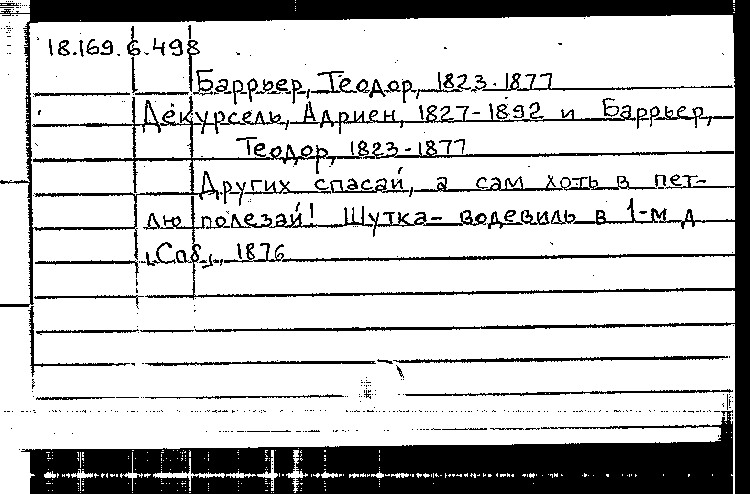 18.169.6.498
Баррьер, Теодор, 1823-1877
Декурсель, Адриен, 1827-1892 и Баррьер,
Теодор, 1823-1877
Других спасай, а сам хоть в пет-
лю полезай! Шутка-водевиль в 1-м д
[Спб], 1876